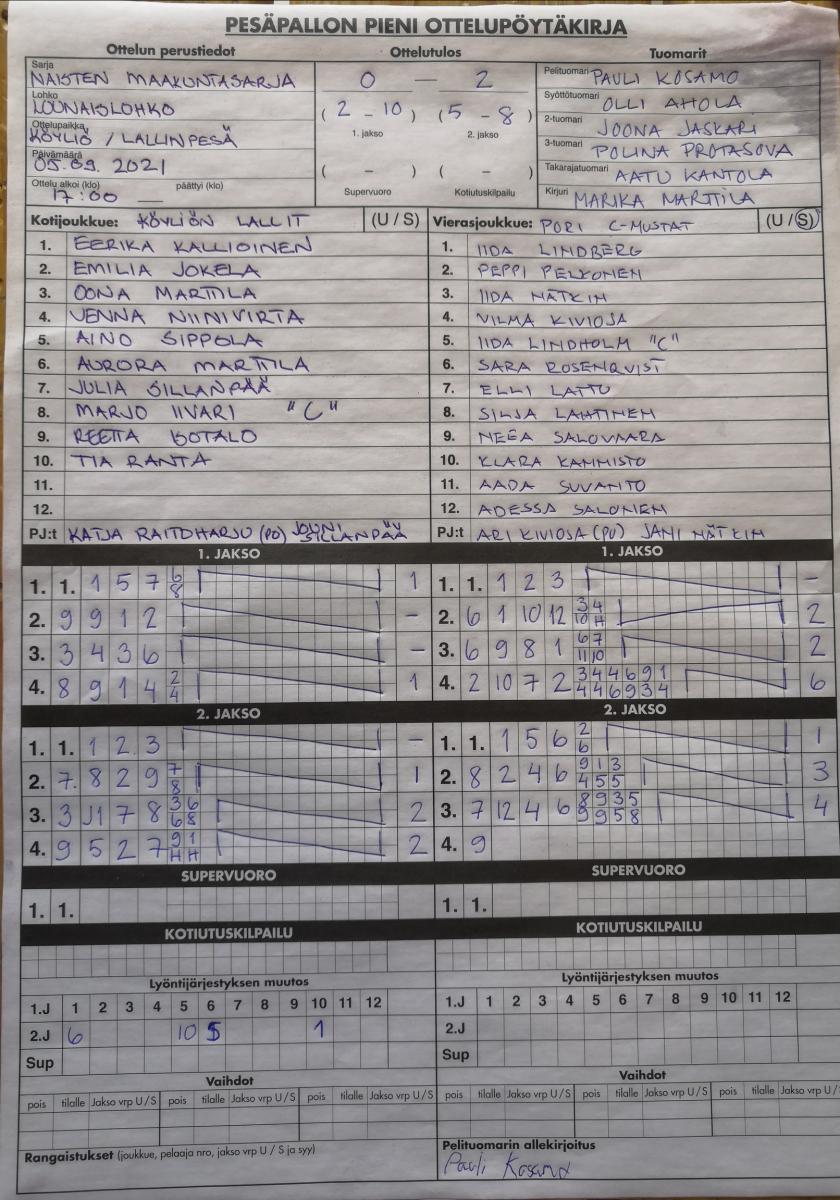 PESÄPALLON PIENI OTTELUPÖYTÄKIRJA
Ottelun perustiedot
Sarja
NAISTEN MAAKUNTASARJA
Lohko
LOUNAISLOHKO
Ottelupaikka
KÖYLIÖ / LALLINPESÄ
Päivämäärä
05.09.2021
Ottelu alkoi (klo) päättyi (klo)
17:00
Ottelutulos
0 — 2
(2 - 10) (5 - 8)
1. jakso 2. jakso
( - ) ( - )
Supervuoro Kotiutuskilpailu
Tuomarit
Pelituomari PAULI KOSAMO
Syöttötuomari OLLI AHOLA
2-tuomari JOONA JASKARI
3-tuomari POLINA PROTASOVA
Takarajatuomari AATU KANTOLA
Kirjuri MARIKA MARTTILA
Kotijoukkue: KÖYLIÖN LALLIT (U / S)
1. EERIKA KALLIOINEN
2. EMILIA JOKELA
3. OONA MARTTILA
4. VENNA NIINIVIRTA
5. AINO SIPPOLA
6. AURORA MARTTILA
7. JULIA SILLANPÄÄ
8. MARJO IIVARI "C"
9. REETTA ISOTALO
10. TIA RANTA
11.
12.
PJ:t KATJA RAITOHARJU (PO) JOUNI SILLANPÄÄ
Vierasjoukkue: PORI C-MUSTAT (U / S)
1. IIDA LINDBERG
2. PEPPI PELKONEN
3. IIDA NÄTKIN
4. VILMA KIVIOJA
5. IIDA LINDHOLM "C"
6. SARA ROSENQVIST
7. ELLI LATTU
8. SILJA LAHTINEN
9. NEEA SALOVAARA
10. KLARA KAMMISTO
11. AADA SUVANTO
12. ADESSA SALONEN
PJ:t ARI KIVIOJA (PO) JANI NÄTKIN
1. JAKSO
1. 1. 1 5 7 6 8 1
2. 9 9 1 2 -
3. 3 4 3 6 -
4. 8 9 1 4 2 4 1
2. JAKSO
1. 1. 1 2 3 -
2. 7. 8 2 9 7 8 1
3. 3 J1 7 8 3 6 6 8 2
4. 9 5 2 7 9 1 H H 2
SUPERVUORO
1. 1.
KOTIUTUSKILPAILU
Lyöntijärjestyksen muutos
1.J 1 2 3 4 5 6 7 8 9 10 11 12
2.J 6 10 5 1
Sup
Vaihdot
pois tilalle Jakso vrp U / S pois tilalle Jakso vrp U / S pois tilalle Jakso vrp U / S
Rangaistukset (joukkue, pelaaja nro, jakso vrp U / S ja syy)
1. JAKSO
1. 1. 1 2 3 -
2. 6 1 10 12 3 4 10 H 2
3. 6 9 8 1 6 7 11 10 2
4. 2 10 7 2 3 4 4 6 9 1 4 4 6 9 3 4 6
2. JAKSO
1. 1. 1 5 6 2 6 1
2. 8 2 4 6 9 1 3 4 5 5 3
3. 7 12 4 6 8 9 3 5 9 9 5 8 4
4. 9
SUPERVUORO
1. 1.
KOTIUTUSKILPAILU
Lyöntijärjestyksen muutos
1.J 1 2 3 4 5 6 7 8 9 10 11 12
2.J
Sup
Vaihdot
pois tilalle Jakso vrp U / S pois tilalle Jakso vrp U / S pois tilalle Jakso vrp U / S
Pelituomarin allekirjoitus
Pauli Kosamo